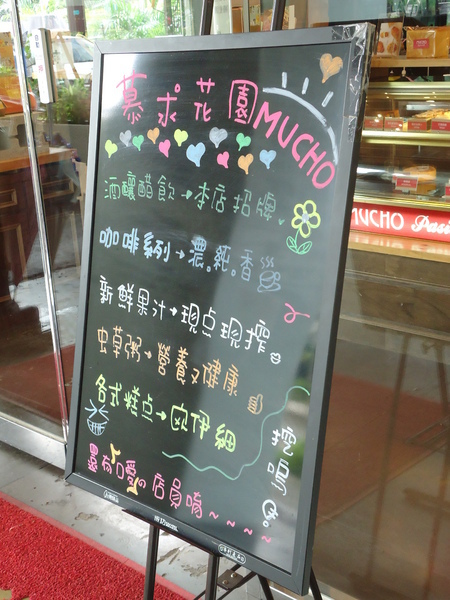 慕求花園 MUCHO
酒釀醋飲→本店招牌
咖啡系列→濃。純。香
新鮮果汁→現点現搾
虫草粥→營養又健康
各式糕点→欧伊細
挖嗚
還有口愛の店員唷~~~~~
MUCHO Pasi